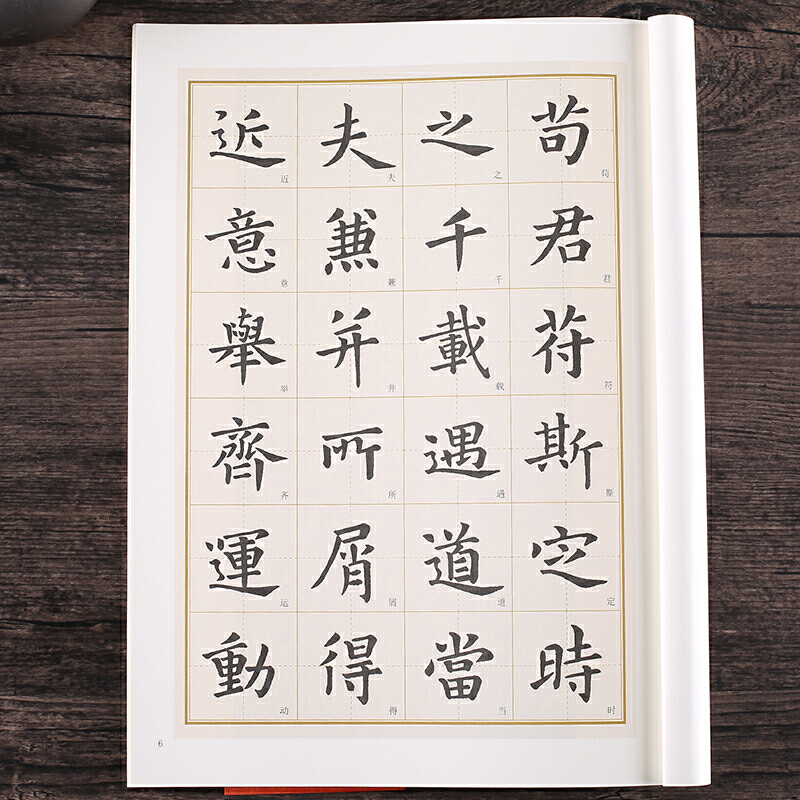 苟君苻斯定時
苟君符斯定时
之千載遇道當
之千载遇道当
夫兼并所屑得
夫兼并所屑得
近意舉齊運動
近意举齐运动
6